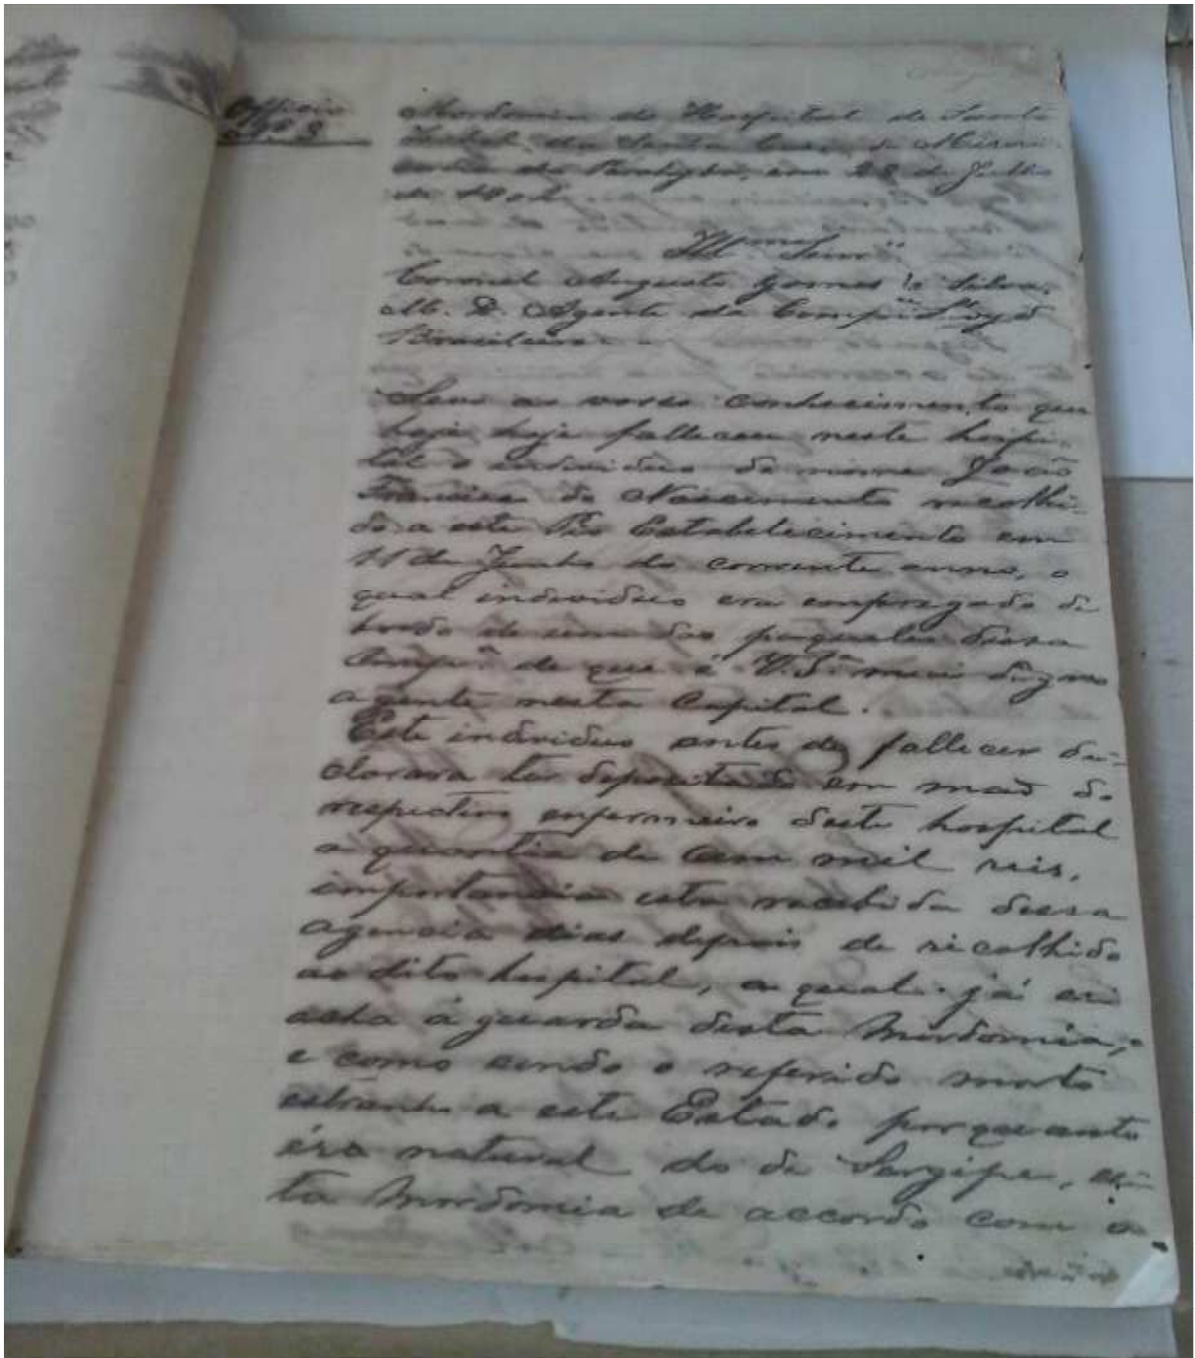 Officio
Nº 3
Mordomia do Hospital de Santa
Isabel da Santa Casa de Miseri-
cordia da Parahyba, em 28 de Julho
de
Illmo Senr
Coronel Augusto Gomes e Silva,
M. D. Agente da Compª Lloyd
Brasileiro
Levo ao vosso conhecimento que
hoje hoje falleceu neste hospi-
tal o individuo de nome João
Francisco do Nascimento recolhi-
do a este Pio Estabelecimento em
11 de Junho do corrente anno, o
qual individuo era empregado de
bordo de um dos paquetes dessa
Compª de que é V. Sª mui digno
agente nesta Capital.
Este individuo antes de fallecer de-
clarara ter depositado em mão do
respectivo enfermeiro deste hospital
a quantia de cem mil reis,
importancia esta recebida dessa
agencia dias depois de recolhido
ao dito hospital, a qual já se
acha á guarda desta Mordomia,
e como sendo o referido morto
estranho a este Estado porquanto
éra natural do de Sergipe, es-
ta Mordomia de accordo com o